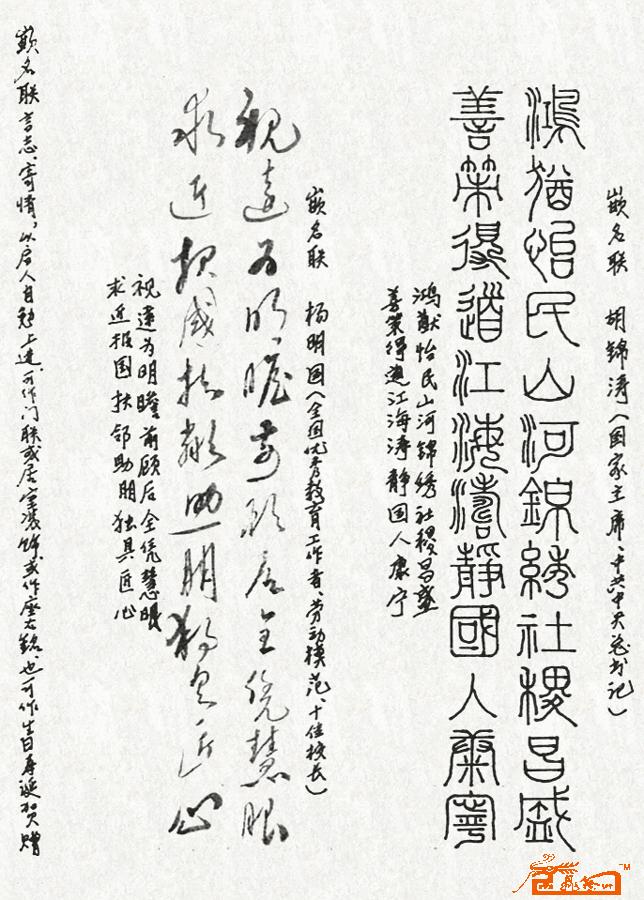 嵌名联 胡锦涛（国家主席、中共中央总书记）
鴻猶怡民山河錦綉社稷昌盛
善策得道江海濤靜國人康寧
鸿猷怡民山河锦绣社稷昌盛
善策得道江海涛静国人康宁
嵌名联 杨明国（全国优秀教育工作者、劳动模范、十佳校长）
视远为明瞻前顾后全凭慧眼
求近报国扶邻助朋独具匠心
视远为明瞻前顾后全凭慧眼
求近报国扶邻助朋独具匠心
嵌名联言志、寄情，以启人自勉上进。可作门联或居室装饰，或作座右铭，也可作生日寿诞贺赠